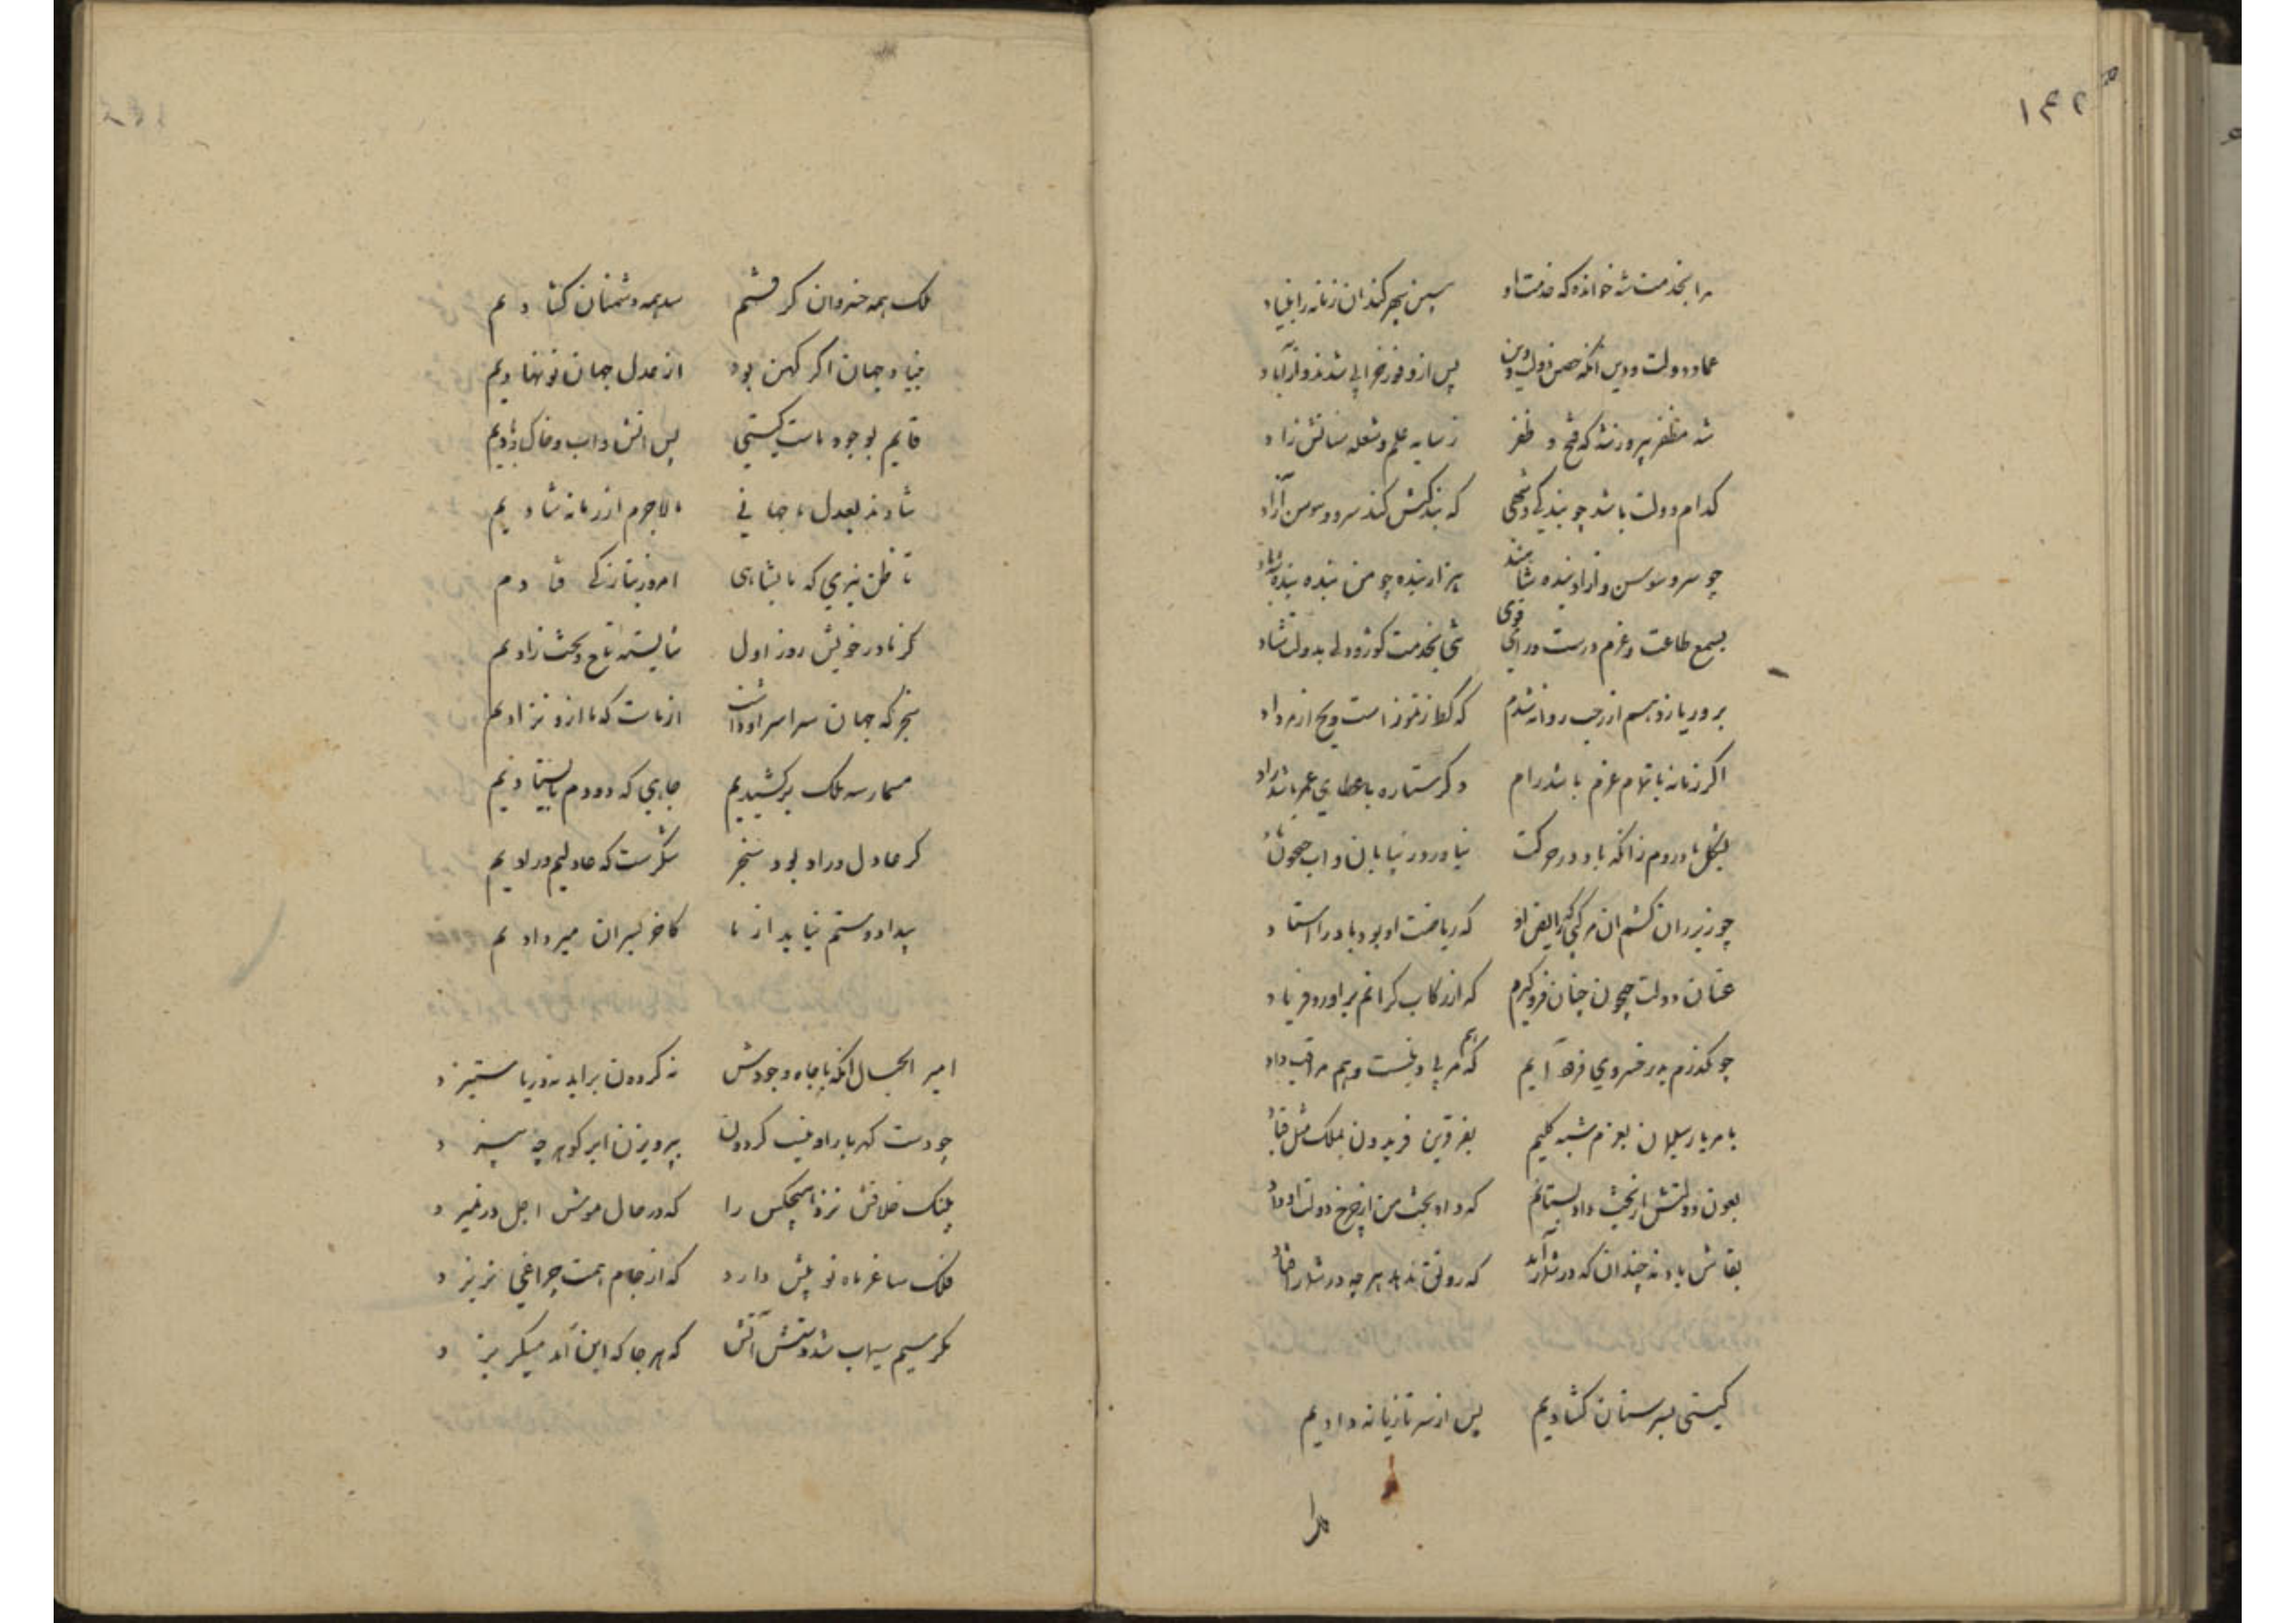 ۱۴۲
مرا بخدمت شه خوانده که خدمت او سپس بچرکند ان زمانه را بنیاد
عماد دولت و دین انکه حصن دولت و دین پس از وفور خرابی شد ازو آباد
شه مظفر پیروز شه که فتح و ظفر ز سایه علم و شعله سنانش زاد
کدام دولت باشد چو بندکی شهی که بندکیش کند سرو و سوسن آزاد
چو سرو و سوسن و ازاد بنده شاهند هزار بنده چو من بنده بنده باد
بسمع طاعت و عزم درست و رای قوی بخدمت بدولت شاد
بروز یازدهم از رجب روانه شدم که از تموز است و از مرداد
اکر زمانه با تمام عزم باشد رام وکر ستاره باعطای عمر باشد راد
بشکل باد روم زانکه باد در حرکت نیاورد ز بیابان و اب جیحون یاد
چو زیر ران کشم ان مرکبی که رایض او که ریاضت او بود باد را استاد
عنان دولت جیحون چنان فرو کیرم که از رکاب کرانم براورد فریاد
چو بکذرم بدر خسروی فرود آیم که هم مربی و هم راقب داد
بامر یار سلیمان بعزم شبه کلیم بفر قرین فریدون بملک مثل قباد
بعون دولتش از بخت داد بستانم که داد بخت من از چرخ دولت او داد
بقاش باد نه چندان که در شمار آید که رونق ندهد هرچه در شمار افتاد
کیتی بسر سنان کشادیم پس از سر تازیانه دادیم
ملک همه خسروان کرفتیم سد همه دشمنان کشادیم
بنیاد جهان اکر کهن بود از عدل جهان نو نهادیم
قایم بوجود ماست کیتی پس اتش و اب و خاک و بادیم
شادند بعدل ما جهانی ما لاجرم از زمانه شادیم
تا ظن نبری که ما بشاهی امروز بتازکی فتادیم
کز مادر خویش روز اول شایسته تاج و تخت زادیم
سنجر که جهان سراسر او داشت از ماست که ما ازو نژادیم
مسمار سه ملک برکشیدیم جایی که دو دم بایستادیم
کر عادل و راد بود سنجر شکرست که عادلیم و رادیم
بیداد و ستم نیاید از ما کاخر پسران میر دادیم
امیر الجبال انکه با جاه و جودش نه کردون براید نه دریا ستیزد
چو دست کهربار او نیست کردون بپرویزن ابر کوهر چه بیزد
پلنک خلافش نزد هیچکس را که در حال موش اجل در نمیزد
فلک ساغر ماه نو پیش دارد که از جام همت جراغی نریزد
مکر سیم سیماب شد دستش آتش که هرجا که این آمد میکریزد